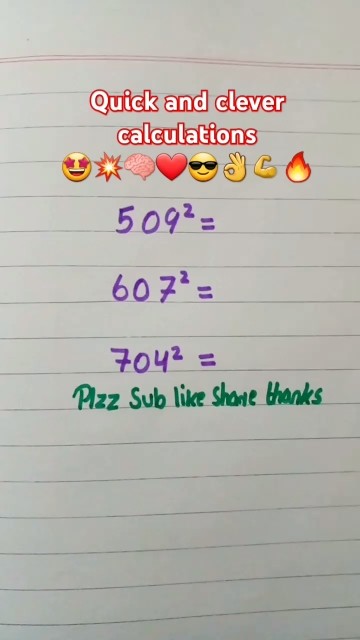 Quick and clever
calculations
🤩💥🧠❤️😎👌💪🔥
509² =
607² =
704² =
Plzz Sub like share thanks